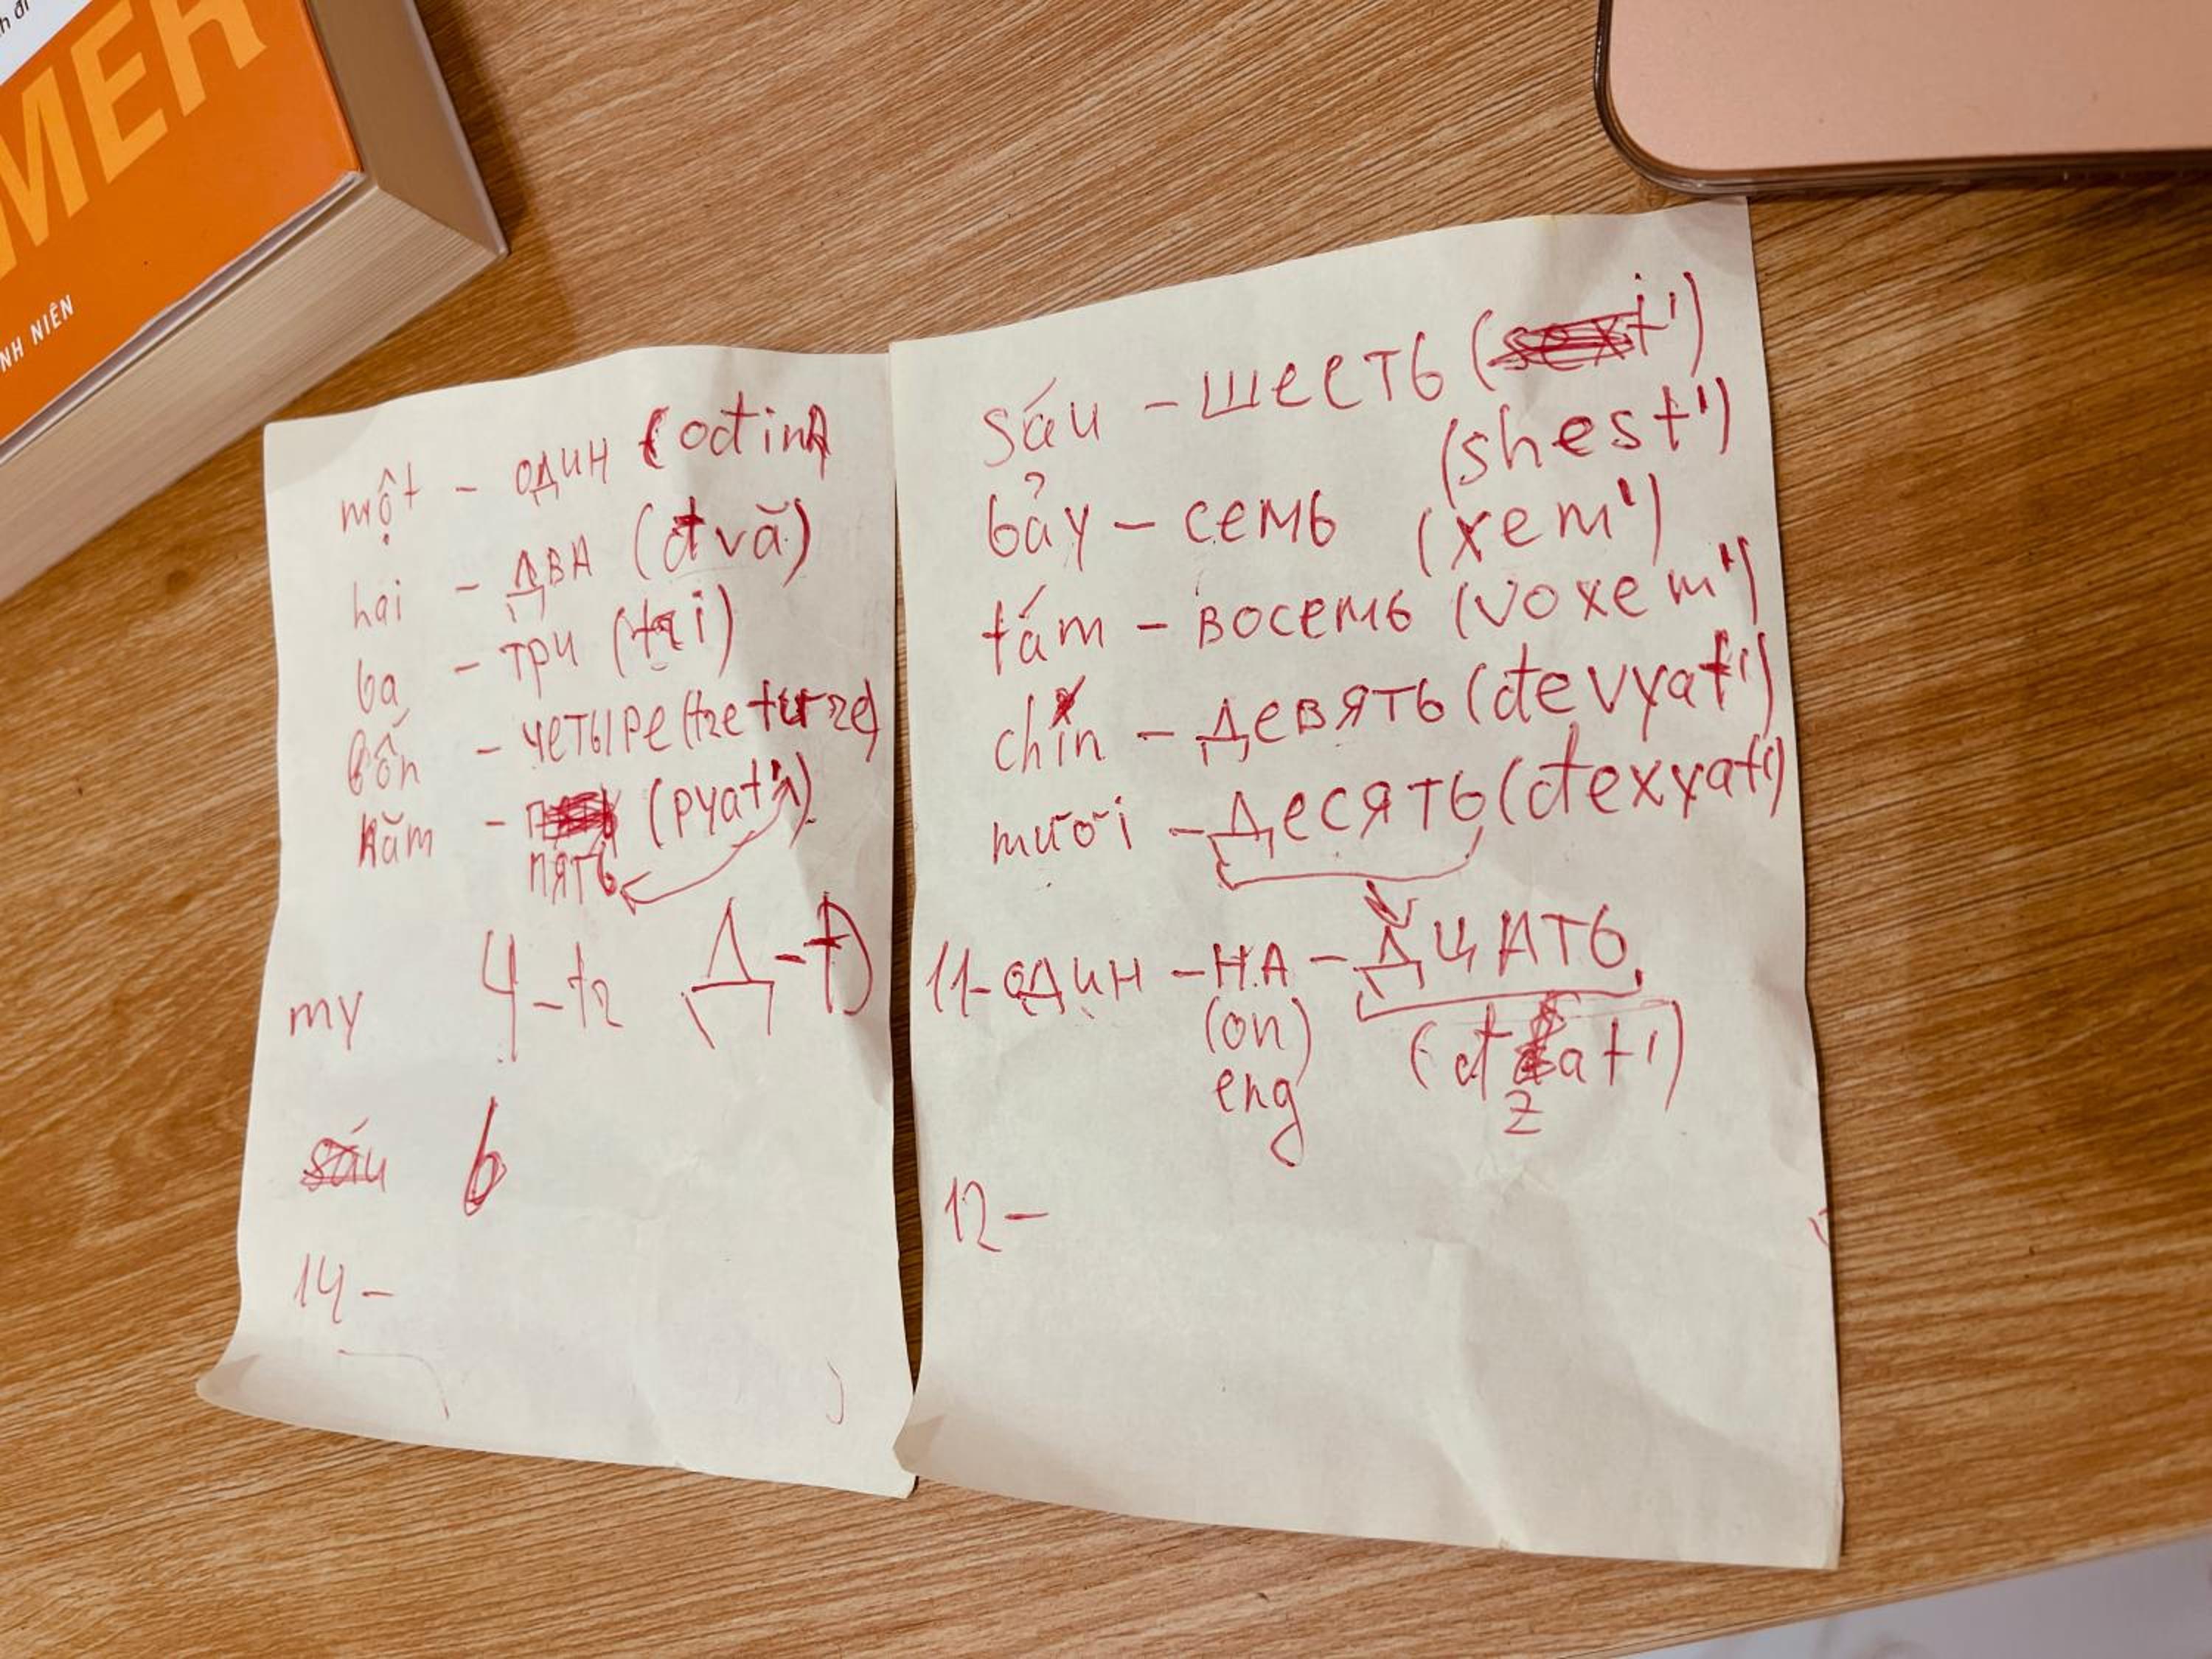 MER
NH NIÊN
một - один (odin)
hai - ДВА (đvă)
ba - три (tri)
bốn - четыре
năm - (pyat')
пять
my Ч-tz Д-Đ
sáu 6
14-
sáu - шесть
(shest')
bảy - семь (xem')
tám - восемь (voxem')
chín - девять (đevyat')
mười - Десять (đexyat')
11-один - НА - ДЦАТЬ
(on) (đzat')
eng
12-